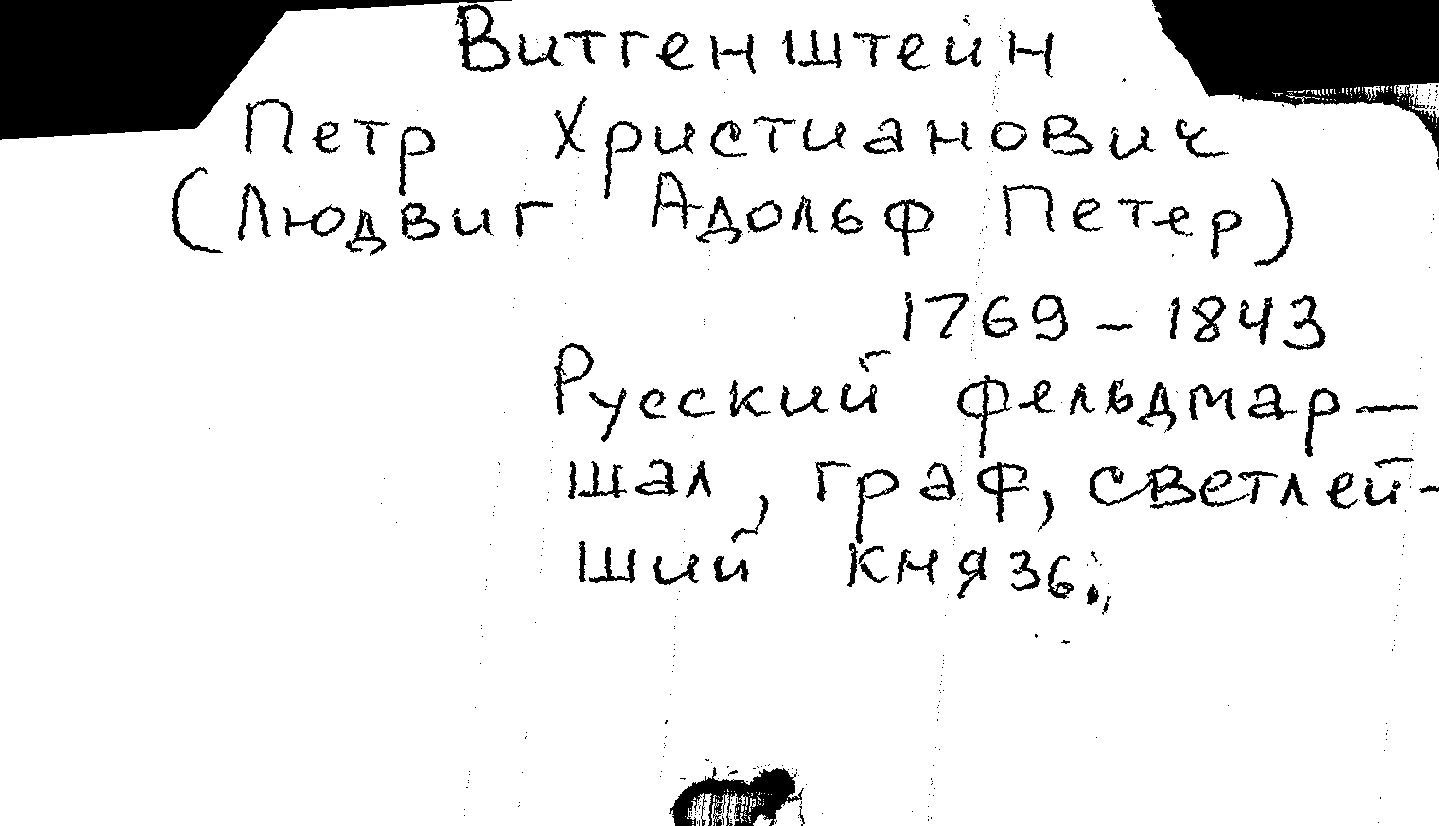 Витгенштейн
Петр Христианович
(Людвиг Адольф Петер)
1769 – 1843
Русский фельдмар-
шал, граф, светлей-
ший князь.,